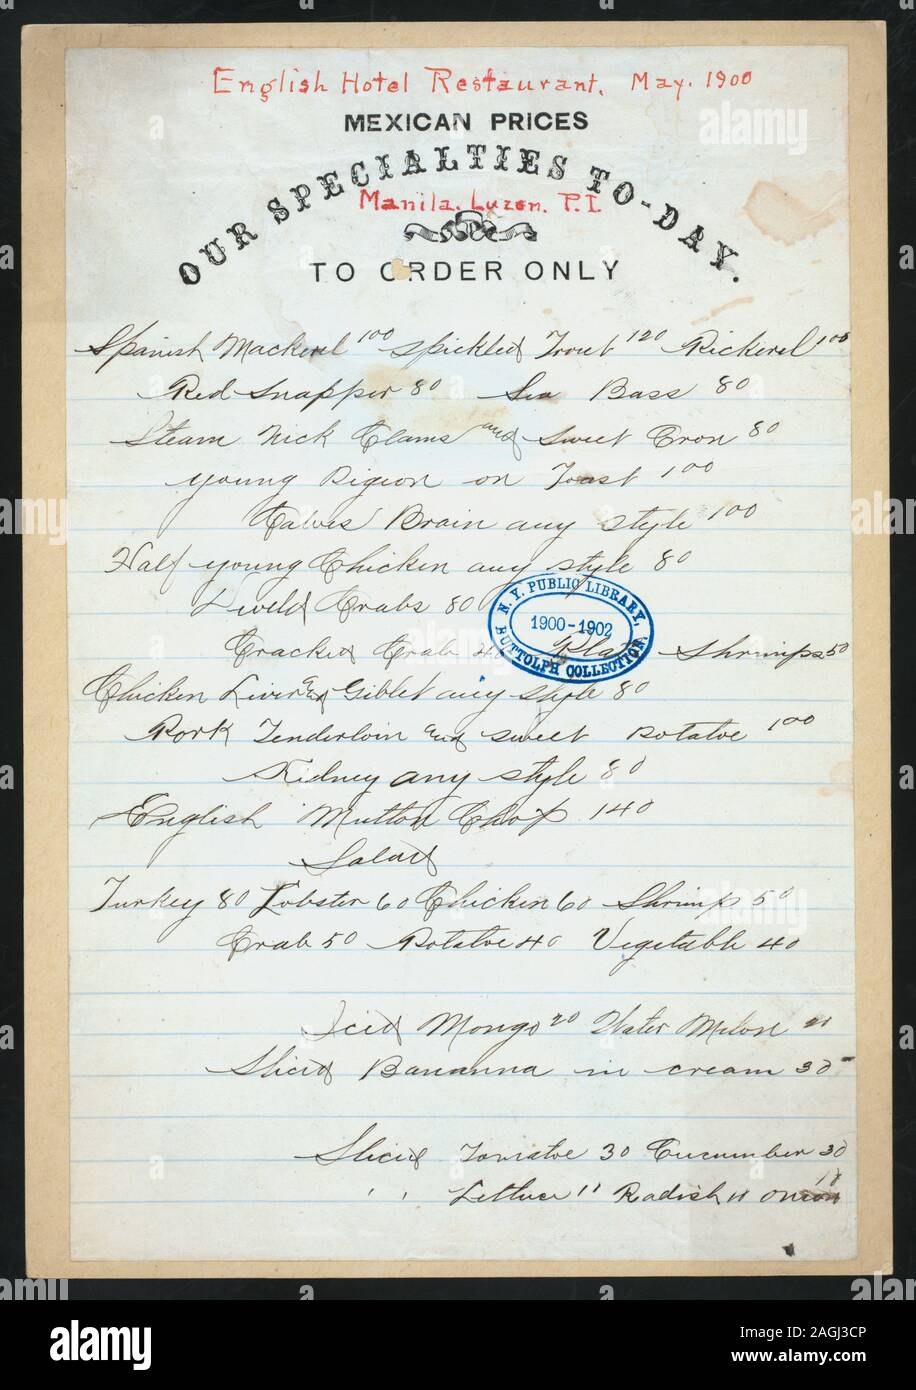 English Hotel Restaurant. May. 1900
MEXICAN PRICES
OUR SPECIALTIES TO-DAY.
Manila. Luzon. P.I.
TO ORDER ONLY
Spanish Mackerel 100 Spickled Trout 120 Pickerel 100
Red Snapper 80 Sea Bass 80
Steam Nick Clams and Sweet Cron 80
Young Pigeon on Toast 100
Calves Brain any style 100
Half young Chicken any style 80
Crabs 80
Cracked Crab 40 Plate Shrimps 50
Chicken Liver and Giblet any style 80
Pork Tenderloin and sweet Potatoe 100
Kidney any style 80
English Mutton Chop 140
Salad
Turkey 80 Lobster 60 Chicken 60 Shrimp 50
Crab 50 Potatoe 40 Vegetable 40
Iced Mongo 20 Water Melon 20
Sliced Bananna in cream 30
Sliced Tomatoe 30 Cucumber 30
" Lettuce " Radish " Onion "
N.Y. PUBLIC LIBRARY,
1900-1902
BUTTOLPH COLLECTION.
alamy
Image ID: 2AGJ3CP
www.alamy.com